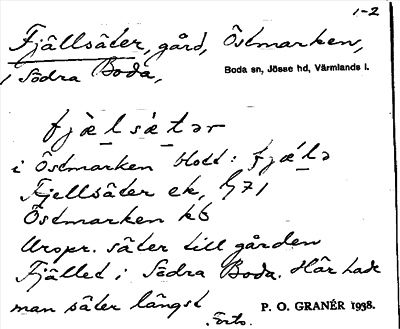 1-2
Fjällsäter, gård, Östmarken,
i Södra Boda,
Boda sn, Jösse hd, Värmlands l.
fjæ̀l sǽtər
i Östmarken blott: fjǽlə
Fjellsäter ek, 1971
Östmarken kb
Urspr. säter till gården
Fjället i Södra Boda. Här hade
man säter längst
P. O. GRANÉR 1938.
Forts.